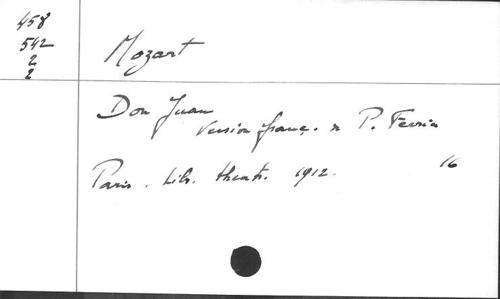 458
542
2
2
Mozart
Don Juan
Version franç. P. Ferrier
Paris. Lib. theatr. 1912. 16